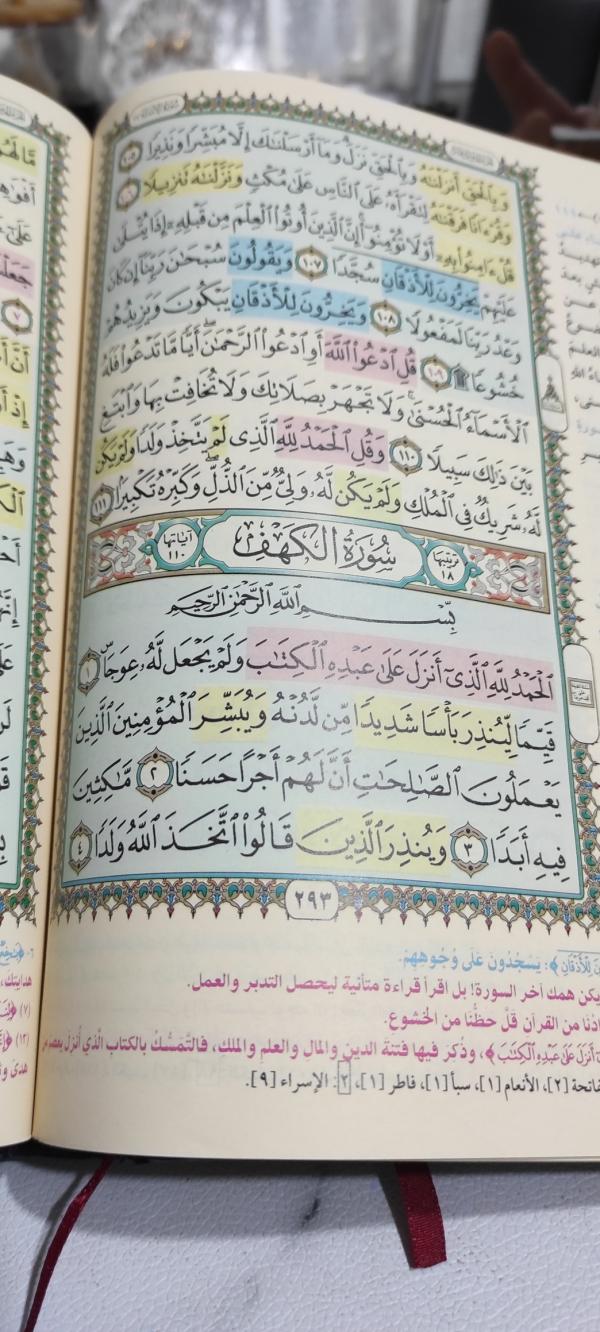 وَبِالْحَقِّ أَنزَلْنَاهُ وَبِالْحَقِّ نَزَلَ وَمَا أَرْسَلْنَاكَ إِلَّا مُبَشِّرًا وَنَذِيرًا ١٠٥
وَقُرْءَانًا فَرَقْنَاهُ لِتَقْرَأَهُ عَلَى النَّاسِ عَلَىٰ مُكْثٍ وَنَزَّلْنَاهُ تَنزِيلًا ١٠٦
قُلْ ءَامِنُوا بِهِ أَوْ لَا تُؤْمِنُوا إِنَّ الَّذِينَ أُوتُوا الْعِلْمَ مِن قَبْلِهِ إِذَا يُتْلَىٰ
عَلَيْهِمْ يَخِرُّونَ لِلْأَذْقَانِ سُجَّدًا ١٠٧ وَيَقُولُونَ سُبْحَانَ رَبِّنَا إِن كَانَ
وَعْدُ رَبِّنَا لَمَفْعُولًا ١٠٨ وَيَخِرُّونَ لِلْأَذْقَانِ يَبْكُونَ وَيَزِيدُهُمْ
خُشُوعًا ۩ ١٠٩ قُلِ ادْعُوا اللَّهَ أَوِ ادْعُوا الرَّحْمَٰنَ أَيًّا مَّا تَدْعُوا فَلَهُ
الْأَسْمَاءُ الْحُسْنَىٰ وَلَا تَجْهَرْ بِصَلَاتِكَ وَلَا تُخَافِتْ بِهَا وَابْتَغِ
بَيْنَ ذَٰلِكَ سَبِيلًا ١١٠ وَقُلِ الْحَمْدُ لِلَّهِ الَّذِي لَمْ يَتَّخِذْ وَلَدًا وَلَمْ يَكُن
لَّهُ شَرِيكٌ فِي الْمُلْكِ وَلَمْ يَكُن لَّهُ وَلِيٌّ مِّنَ الذُّلِّ وَكَبِّرْهُ تَكْبِيرًا ١١١
ترتيبها ١٨ سُورَةُ الْكَهْفِ آياتها ١١٠
بِسْمِ اللَّهِ الرَّحْمَٰنِ الرَّحِيمِ
الْحَمْدُ لِلَّهِ الَّذِي أَنزَلَ عَلَىٰ عَبْدِهِ الْكِتَابَ وَلَمْ يَجْعَل لَّهُ عِوَجًا ۜ ١
قَيِّمًا لِّيُنذِرَ بَأْسًا شَدِيدًا مِّن لَّدُنْهُ وَيُبَشِّرَ الْمُؤْمِنِينَ الَّذِينَ
يَعْمَلُونَ الصَّالِحَاتِ أَنَّ لَهُمْ أَجْرًا حَسَنًا ٢ مَّاكِثِينَ
فِيهِ أَبَدًا ٣ وَيُنذِرَ الَّذِينَ قَالُوا اتَّخَذَ اللَّهُ وَلَدًا ٤
٢٩٣
لِلْأَذْقَانِ﴾: يَسْجُدُونَ عَلَى وُجُوهِهِمْ.
يكن همك آخر السورة! بل اقرأ قراءة متأنية ليحصل التدبر والعمل.
من القرآن قلَّ حظُّنا من الخشوع.
أَنزَلَ عَلَىٰ عَبْدِهِ الْكِتَابَ﴾، وذُكر فيها فتنة الدين والمال والعلم والملك، فالتَّمَسُّكُ بالكتاب الَّذي أُنزل يعصم من
[٢]، الأنعام [١]، سبأ [١]، فاطر [١]، ٢: الإسراء [٩].